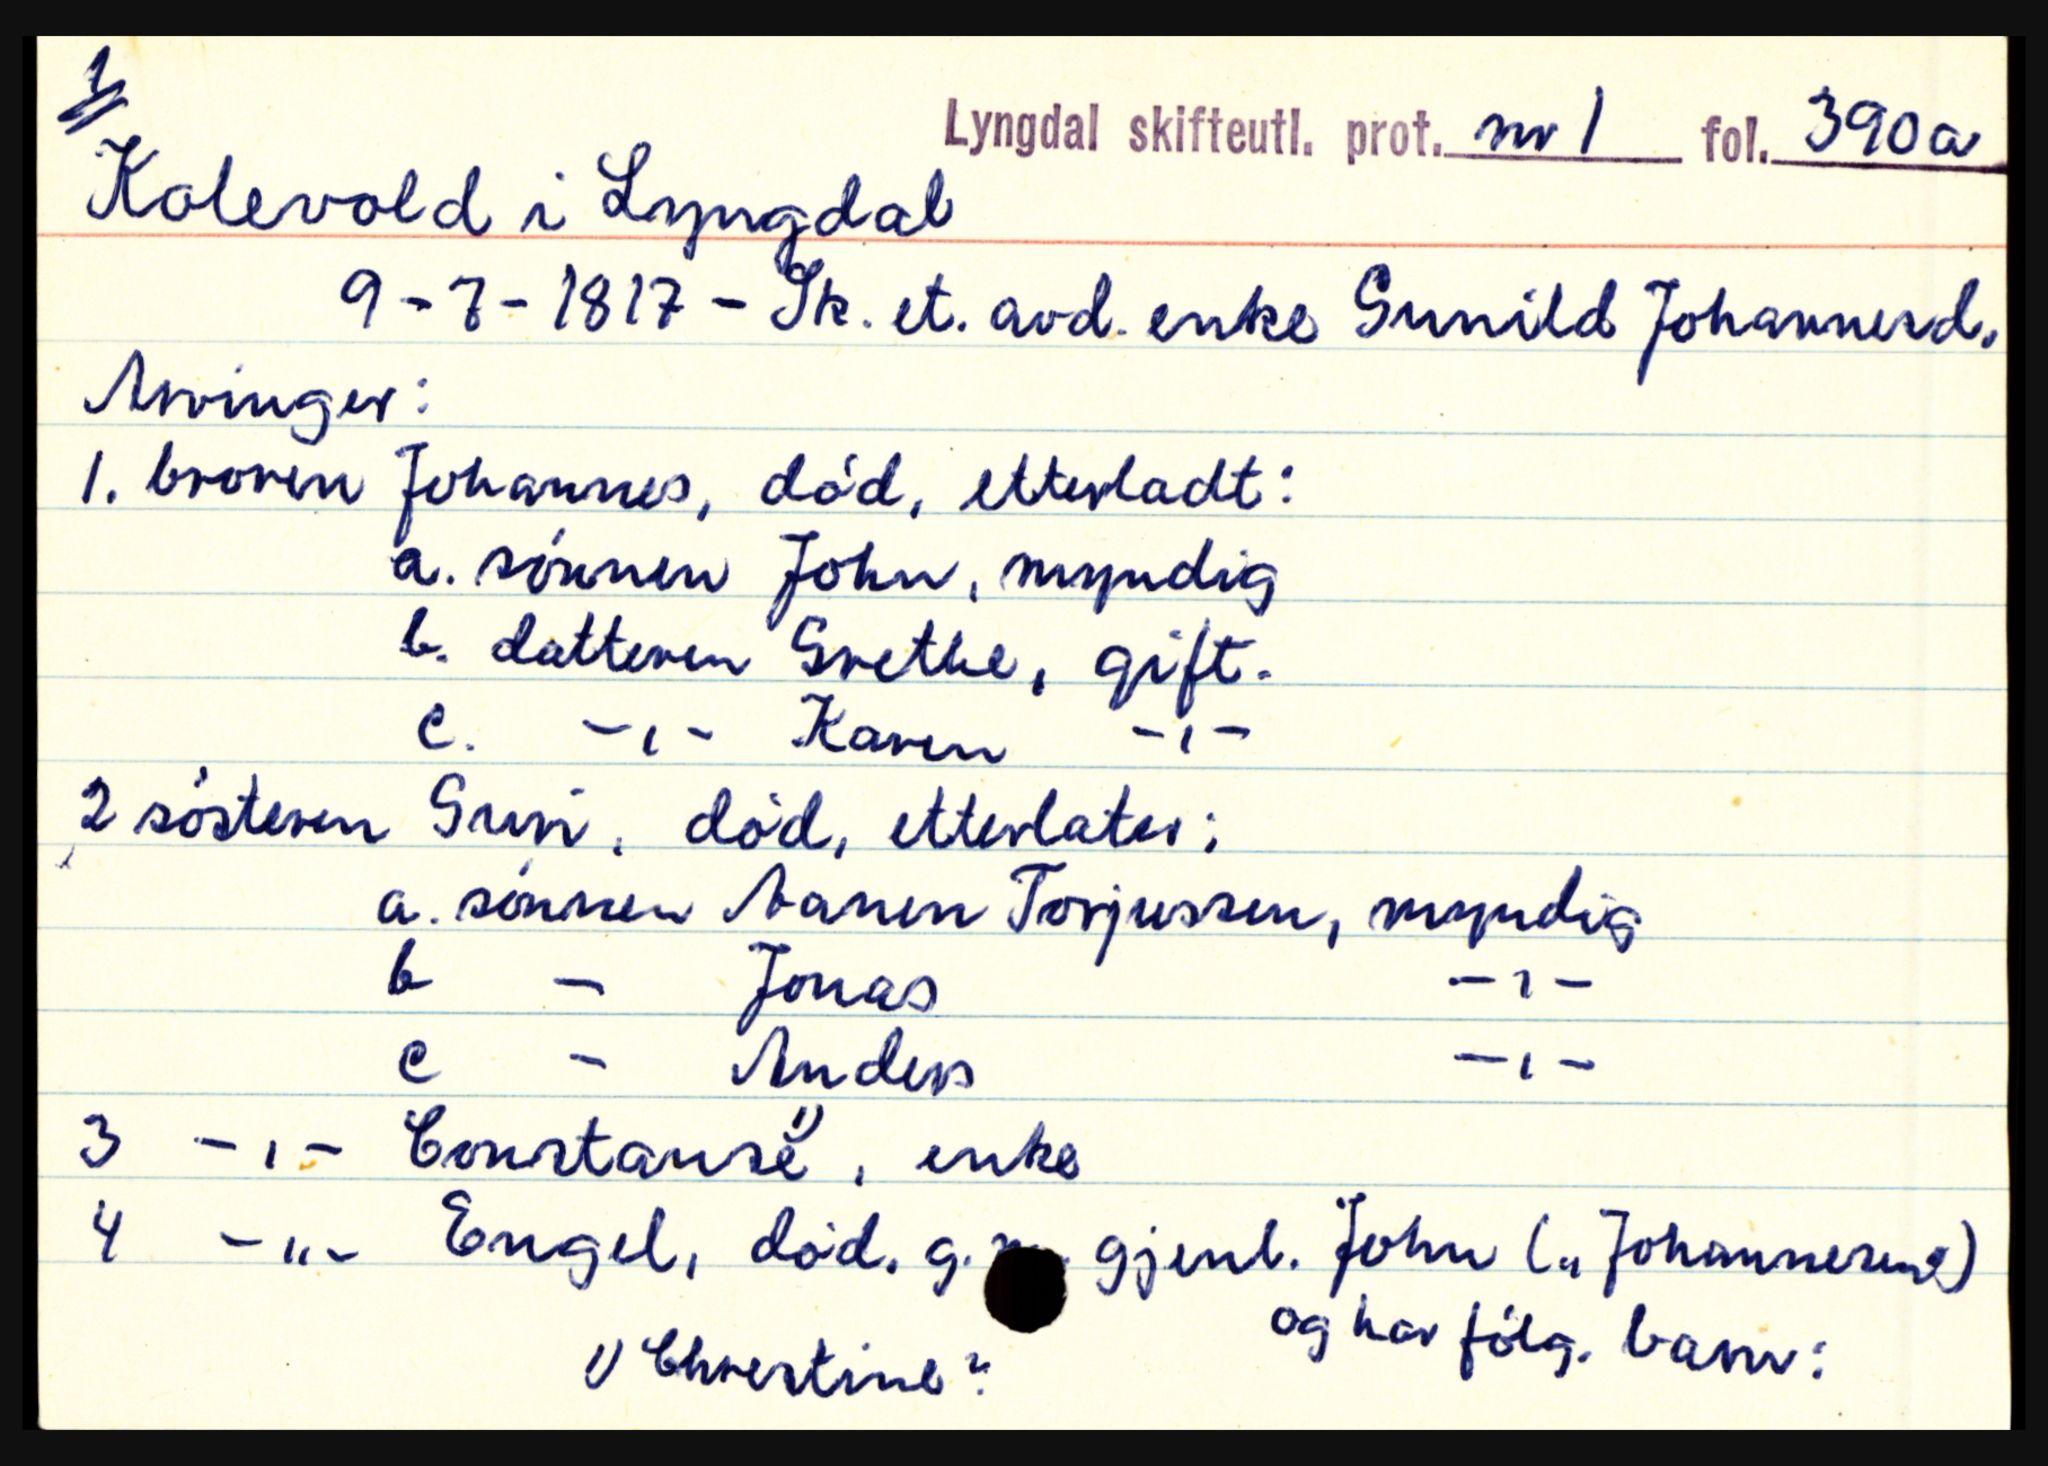 1
Lyngdal skifteutl. prot. nr 1 fol. 390a
Kalevold i Lyngdal
9-7-1817 - Sk. et. avd. enke Gunild Johannesd.
Arvinger:
1. broren Johannes, død, etterladt:
a. sønnen John, myndig
b. datteren Grethe, gift.
c. -,- Karen -,-
2 søsteren Guri, død, etterlater:
a. sønnen Aanen Torjussen, myndig
b - Jonas -,-
c - Anders -,-
3 -,- Constanse 1), enke
4 -,,- Engel, død. g.m. gjenl. John (" Johannesen")
og har følg. barn:
1) Chrestine?